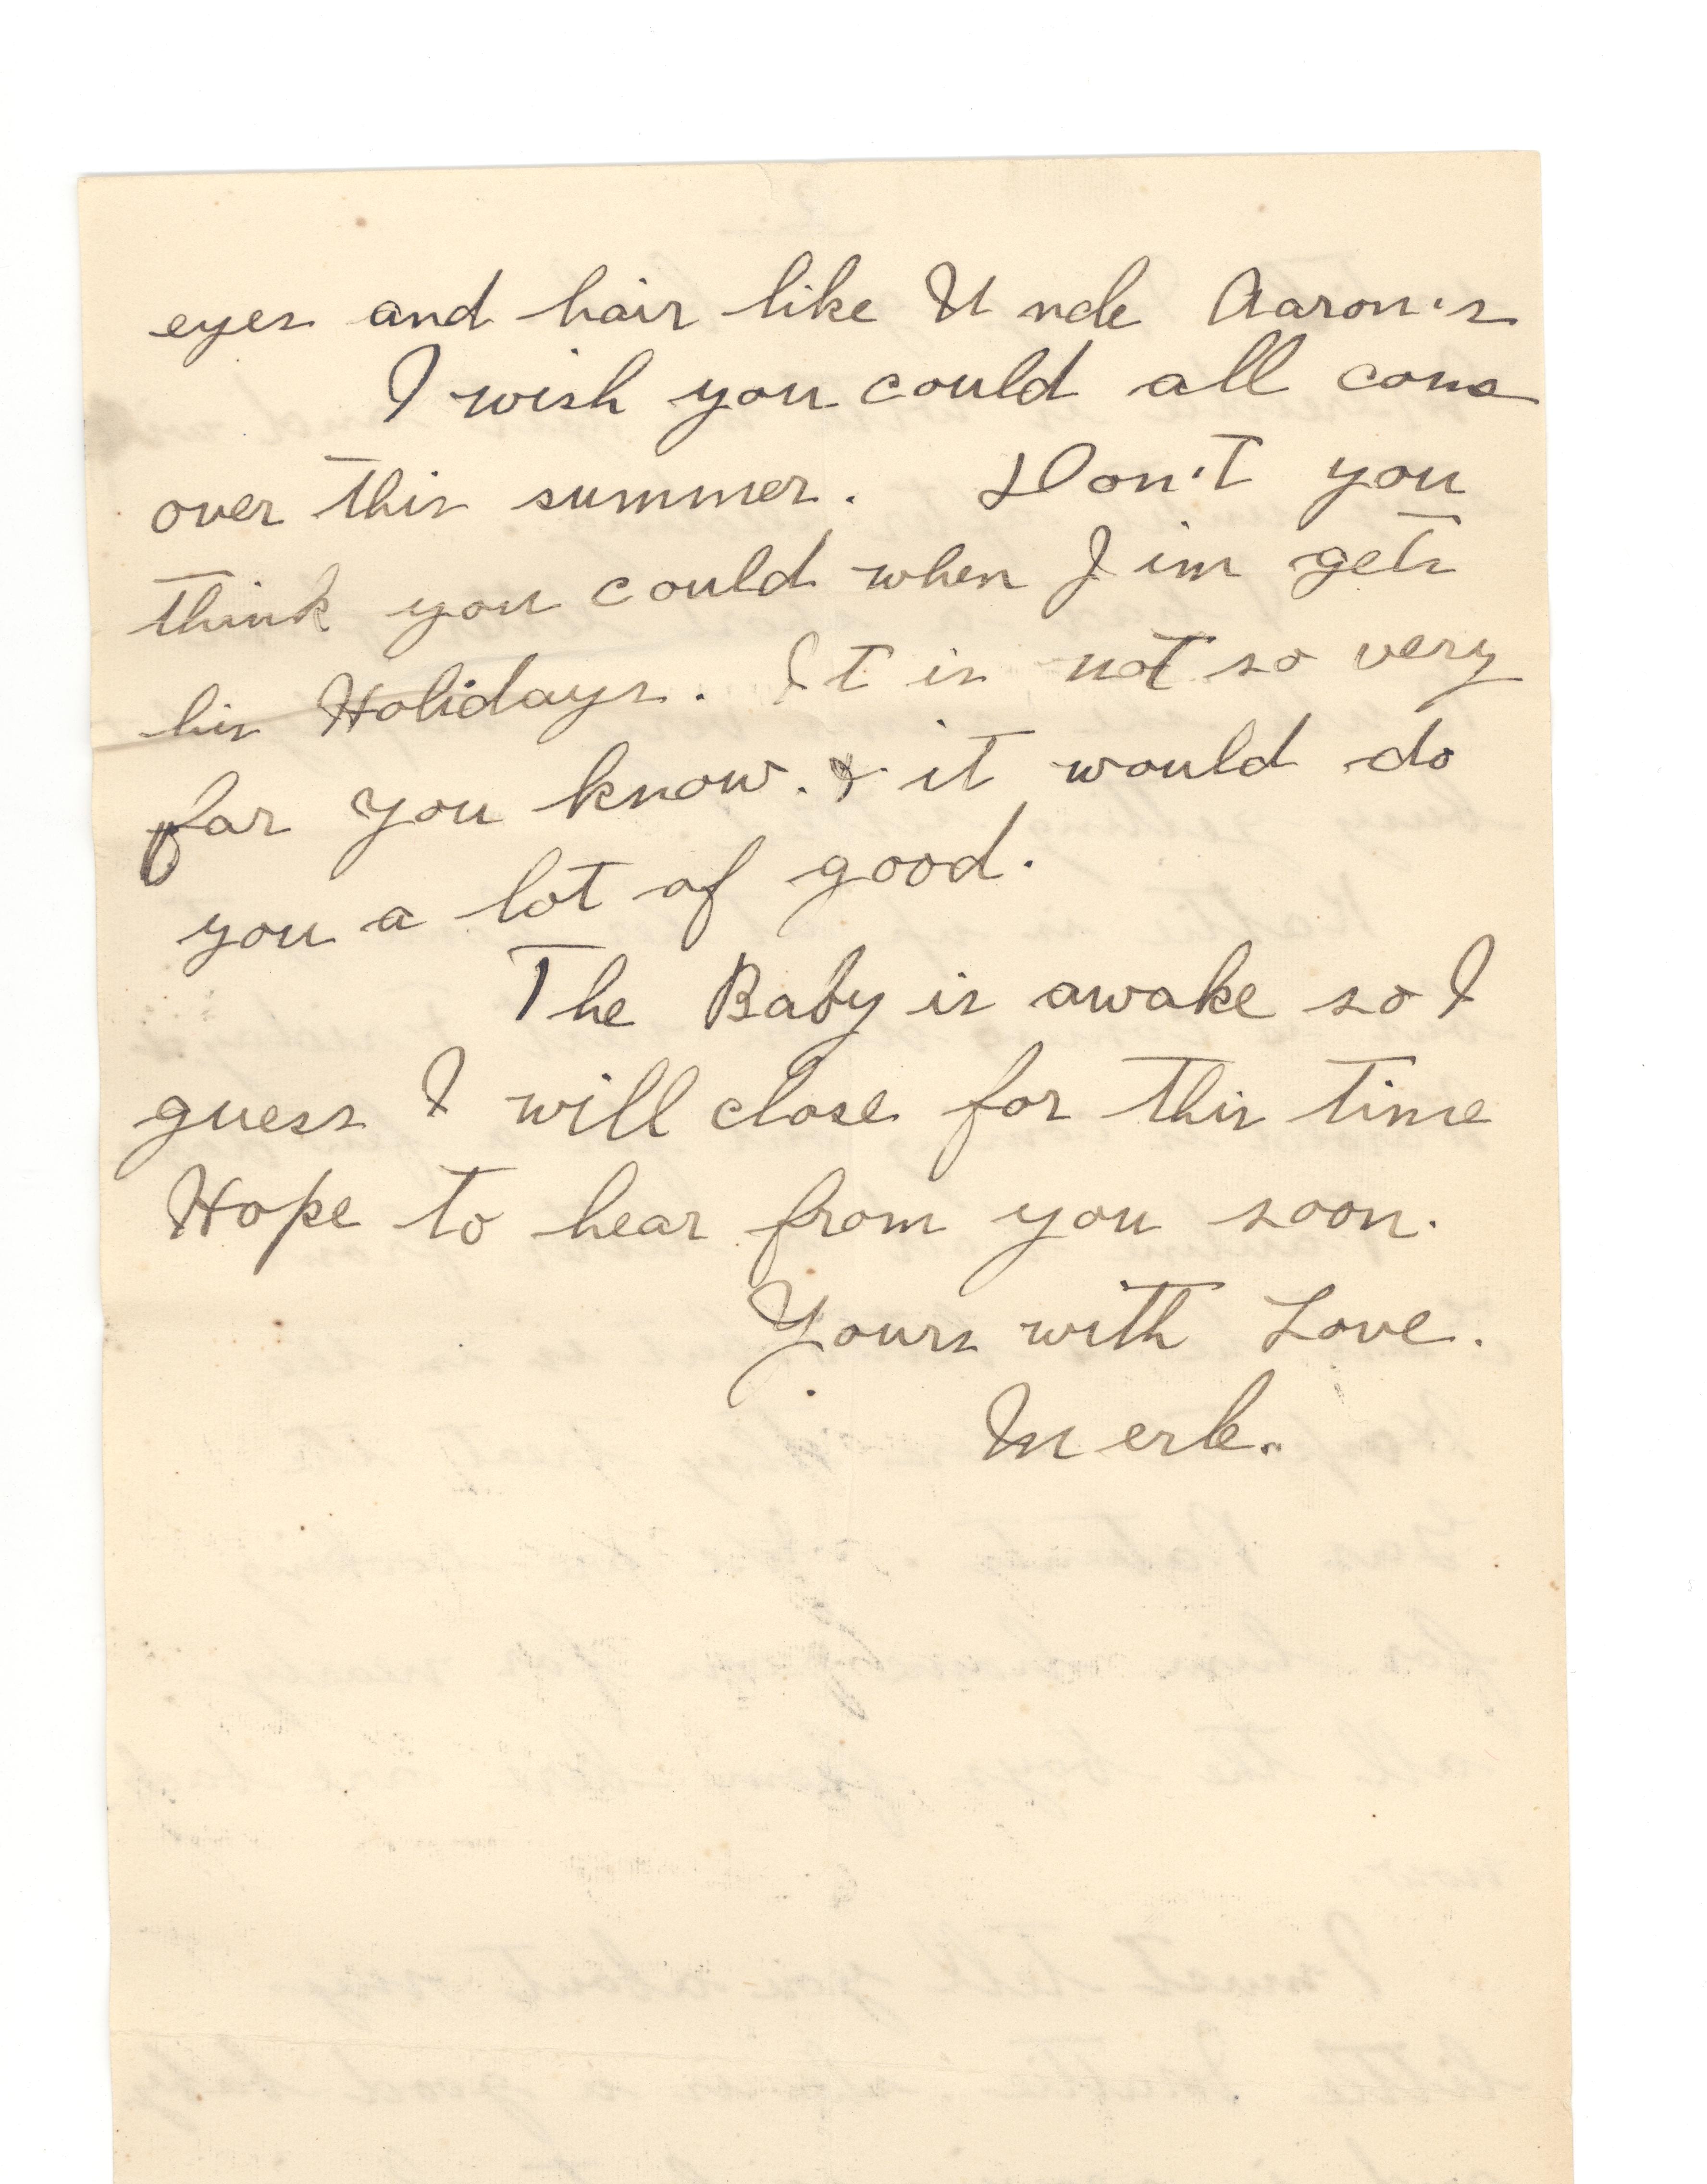 eyes and hair like Uncle Aaron's
I wish you could all come
over this summer. Don't you
think you could when Jim gets
his Holidays. It is not so very
far you know. & it would do
you a lot of good.
The Baby is awake so I
guess I will close for this time
Hope to hear from you soon.
Yours with Love.
Merle.